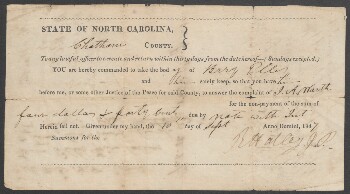 STATE OF NORTH CAROLINA,
Chatham COUNTY.
To any lawful officer to execute and return within thirty days from the date hereof—(Sundays excepted.)
YOU are hereby commanded to take the body of
and safely keep, so that you have
before me, or some other Justice of the Peace for said County, to answer the complaint of
for the non-payment of the sum of
four dollars & forty due by note with Int
Herein fail not. Given under my hand, this 10 day of Sept Anno Domini, 184
Summons for the